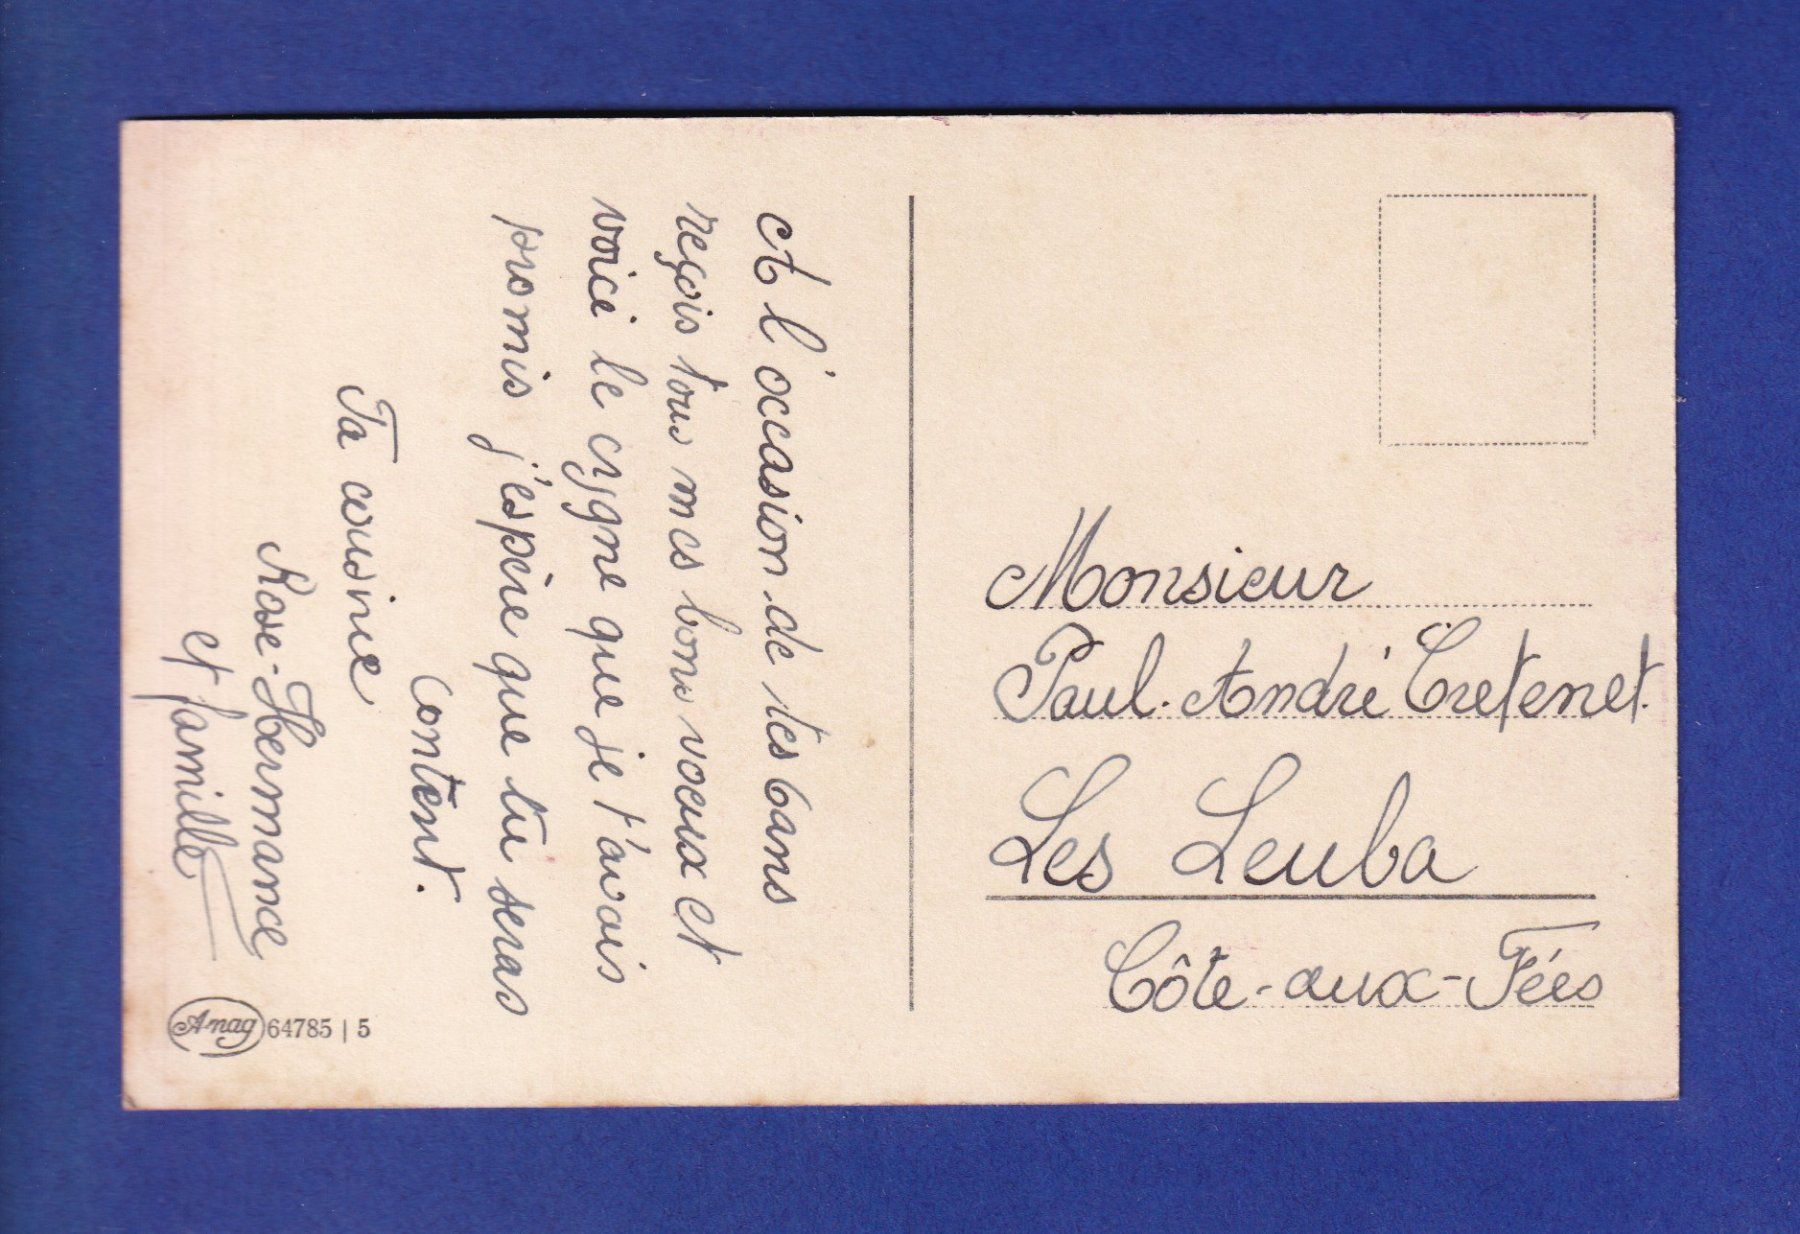 et l'occasion de tes 6 ans
reçois tous mes bons voeux et
voici le cygne que je t'avais
promis j'espère que tu seras
content.
Ta cousine
Rose-Hermance
et famille
Anag 64785 | 5
Monsieur
Paul-André Cretenet
Les Leuba
Côte-aux-Fées